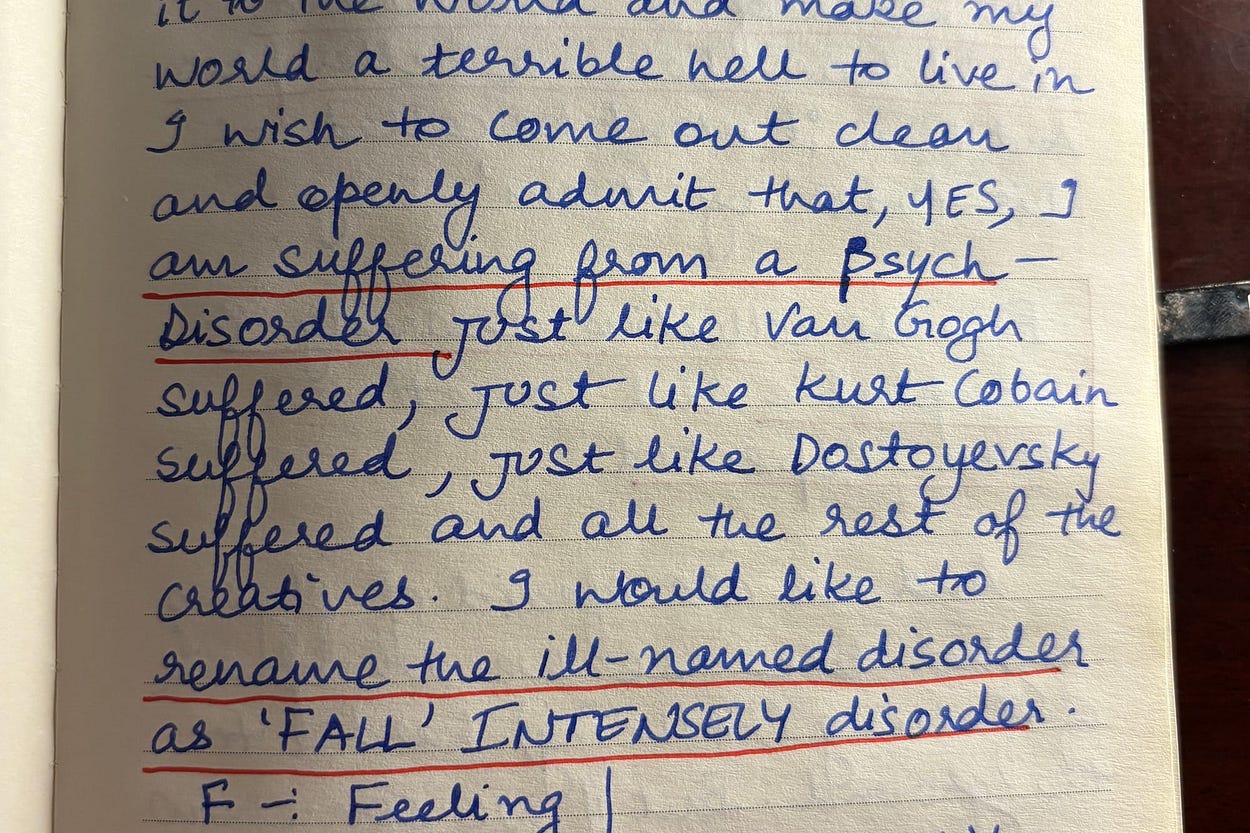 it to the world and make my
world a terrible hell to live in
I wish to come out clean
and openly admit that, YES, I
am suffering from a Psych-
Disorder just like Van Gogh
suffered, just like Kurt Cobain
suffered, just like Dostoyevsky
suffered and all the rest of the
creatives. I would like to
rename the ill-named disorder
as 'FALL' INTENSELY disorder.
F -: Feeling |